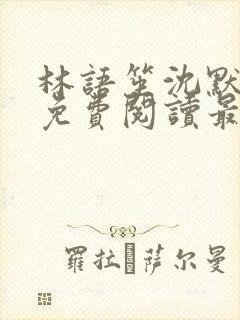 林語笙沈默
免費閱讀最
羅拉 萨尔曼